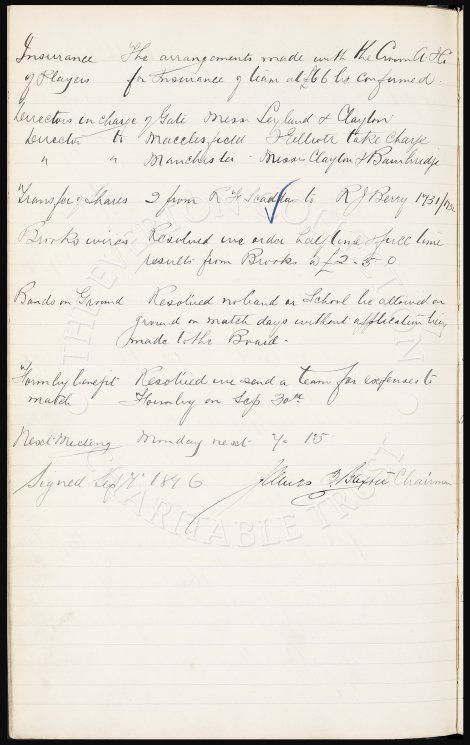 Insurance The arrangements made with the Crown A Co
of Players for Insurance of team at £66 be confirmed.
Directors in charge of Gate Messrs Leyland & Clayton
Director to Macclesfield Elliott take charge
" " Manchester - Messrs Clayton & Bainbridge
Transfer of Shares 2 from R F to R J Berry 1731/1732
Brooks wires Resolved we order half time & full time
results from Brooks @ £2-5-0
Bands on Ground Resolved no band or School be allowed on
ground on match days without application being
made to the Board.
Formby benefit Resolved we send a team for expenses to
match Formby on Sep 30th
Next Meeting Monday next 7-15
Signed Sep 1896 Chairman
THE EVERTON COLLECTION
CHARITABLE TRUST